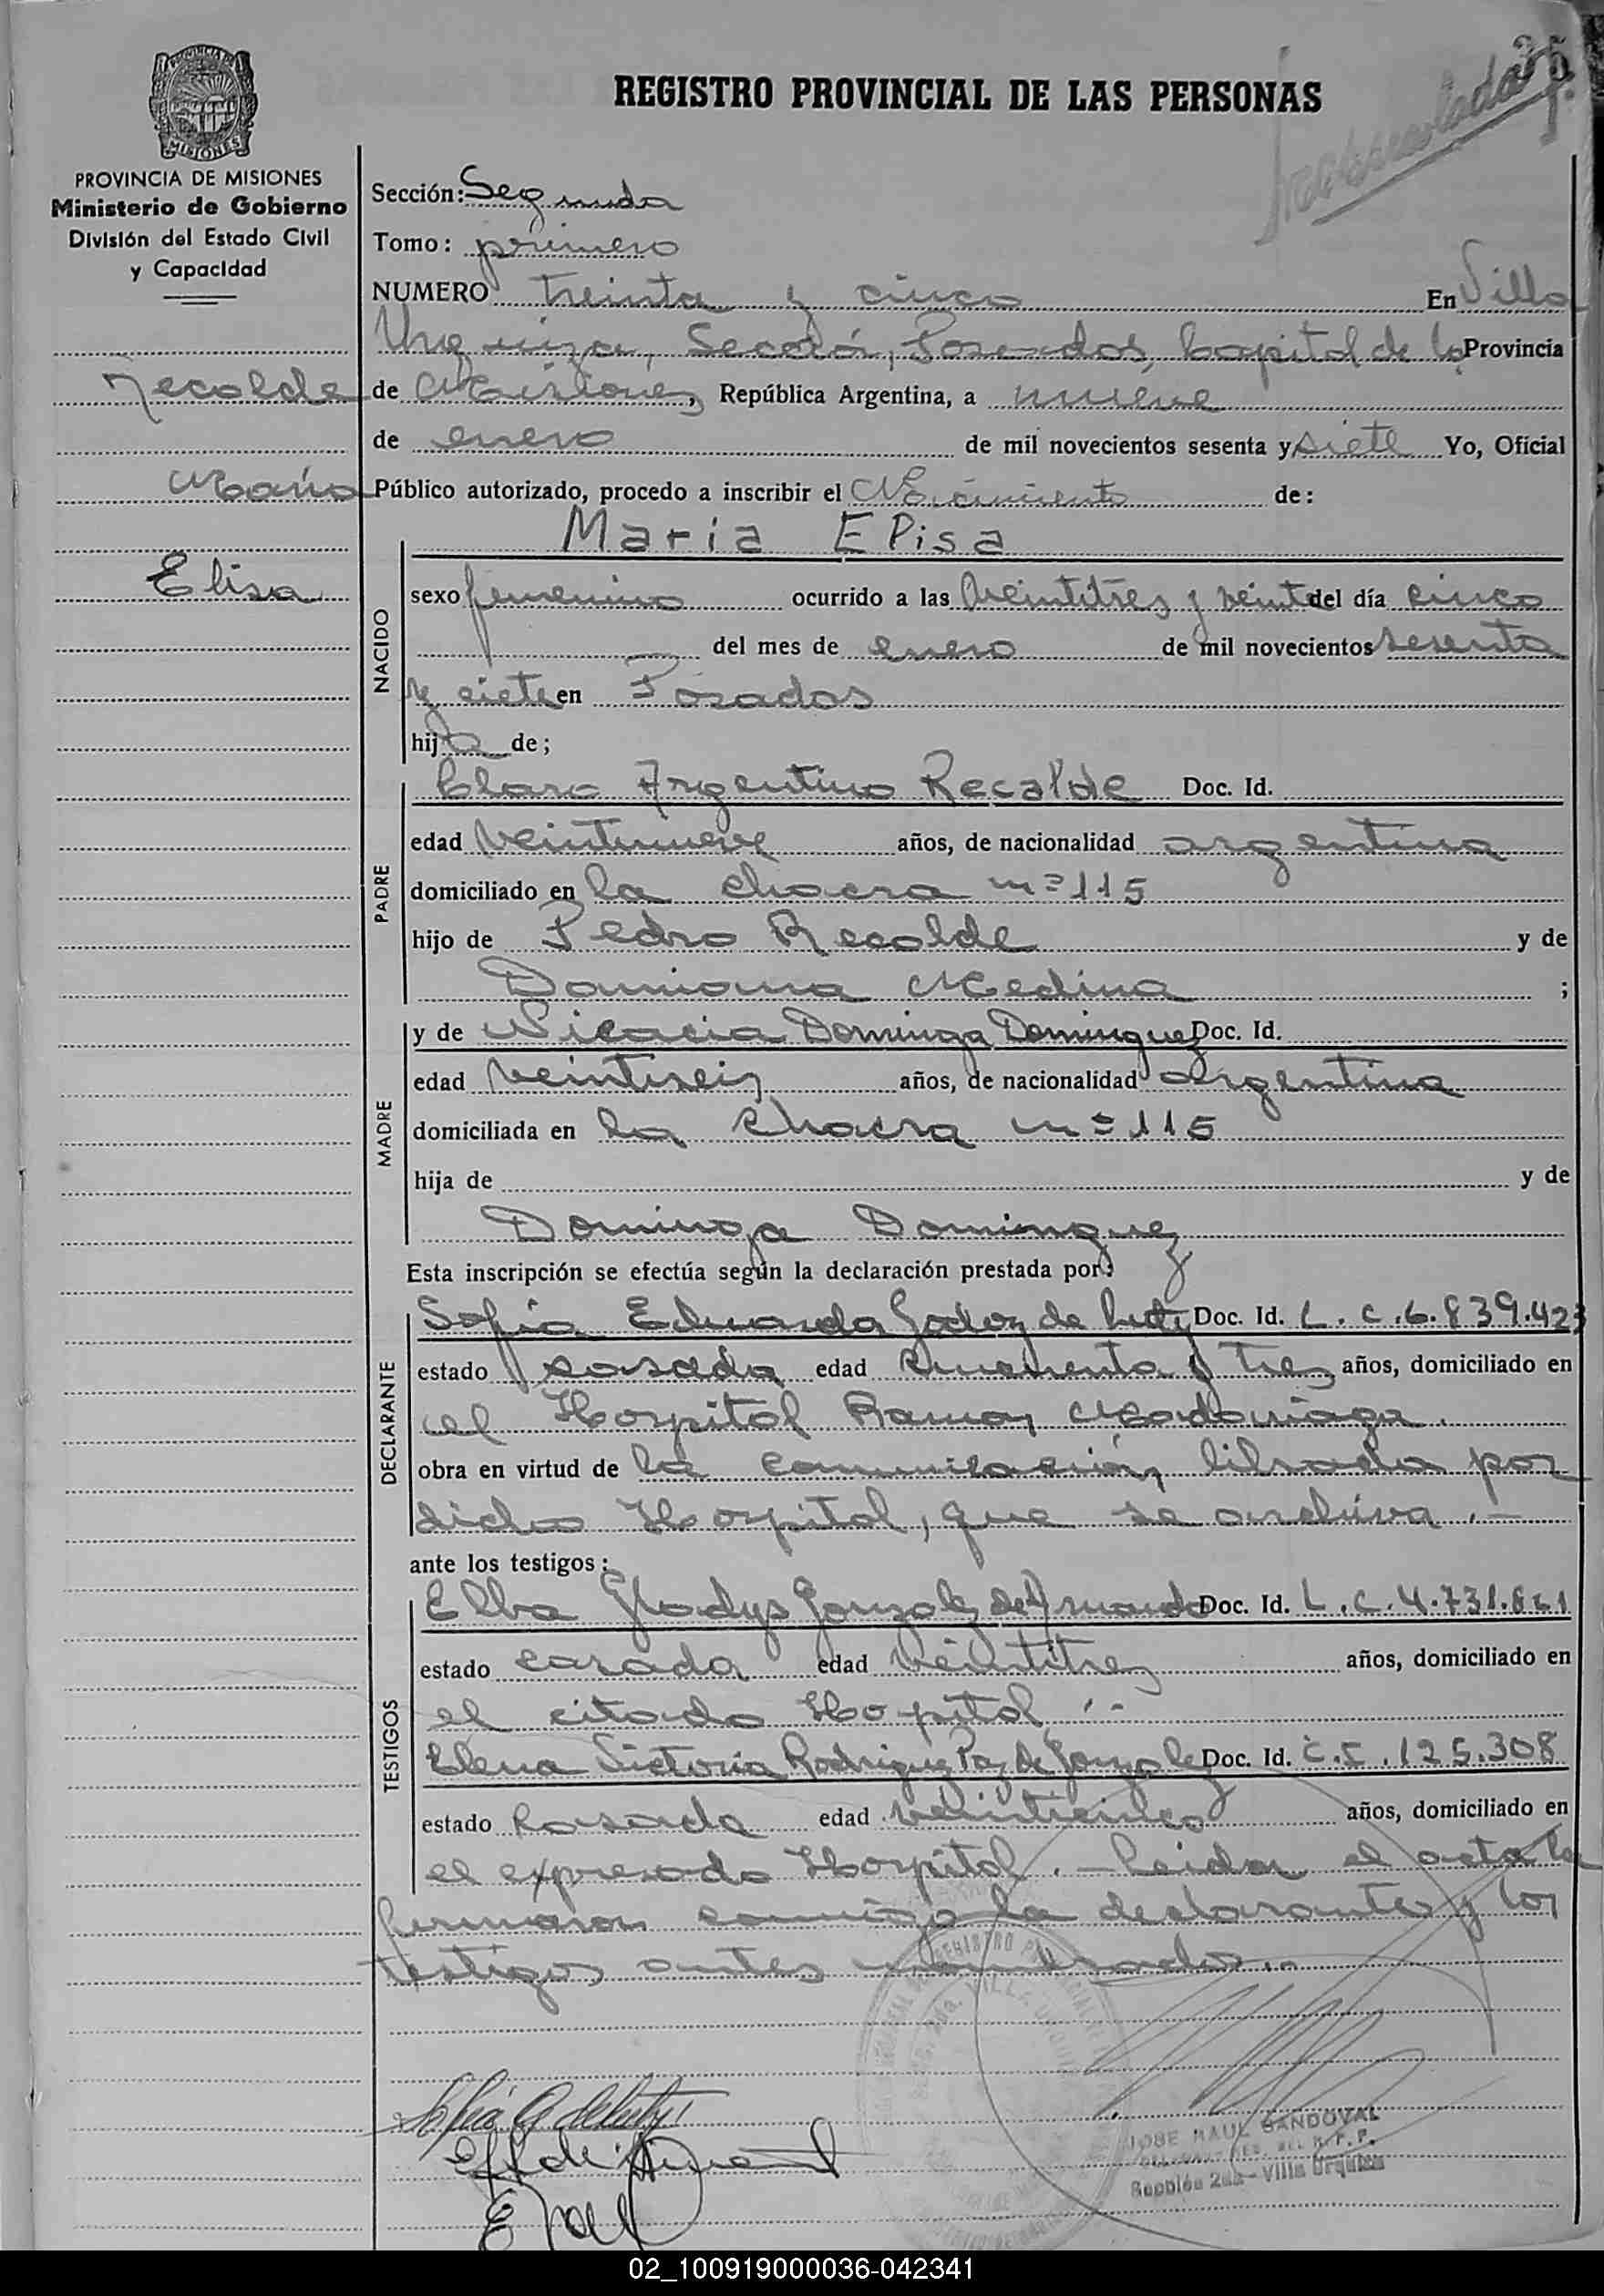 35
REGISTRO PROVINCIAL DE LAS PERSONAS
PROVINCIA DE MISIONES
Ministerio de Gobierno
División del Estado Civil
y Capacidad
Recalde
María
Elisa
Sección: Segunda
Tomo: primero
NUMERO treinta y cinco En Villa
Urquiza, Sección, Posadas, Capital de la Provincia
de Misiones, República Argentina, a nueve
de enero de mil novecientos sesenta y siete Yo, Oficial
Público autorizado, procedo a inscribir el Nacimiento de:
NACIDO
María Elisa
sexo femenino ocurrido a las veintitres y veinte del día cinco
del mes de enero de mil novecientos sesenta
y siete en Posadas
hija de;
PADRE
Claro Argentino Recalde Doc. Id.
edad veintinueve años, de nacionalidad argentina
domiciliado en la chacra nº 115
hijo de Pedro Recalde y de
Damiana Medina ;
MADRE
y de Nicacia Dominga Dominguez Doc. Id.
edad veintiseis años, de nacionalidad argentina
domiciliada en la chacra nº 115
hija de y de
Dominga Dominguez
Esta inscripción se efectúa según la declaración prestada por:
DECLARANTE
Sofia Eduarda Godoy de Doc. Id. L. C. 6.839.423
estado casada edad cincuenta y tres años, domiciliado en
el Hospital Ramon Madariaga.
obra en virtud de la comunicación, librada por
dicho Hospital, que se archiva.-
ante los testigos:
TESTIGOS
Elba Gladys Gonzalez de Doc. Id. L. C. 4.731.861
estado casada edad veintitres años, domiciliado en
el citado Hospital.-
Elena Victoria Rodriguez Paz de Gonzalez Doc. Id. C. I. 125.308
estado casada edad veinticinco años, domiciliado en
el expresado Hospital.- Leida el acta la
firmaron conmigo la declarante y los
testigos antes nombrados.-
JOSE RAUL SANDOVAL
Sección 2da - Villa Urquiza
02_100919000036-042341